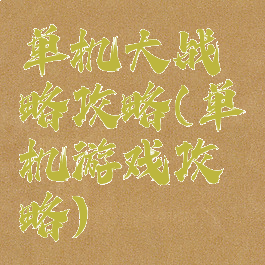 单机大战
略攻略(单
机游戏攻
略)